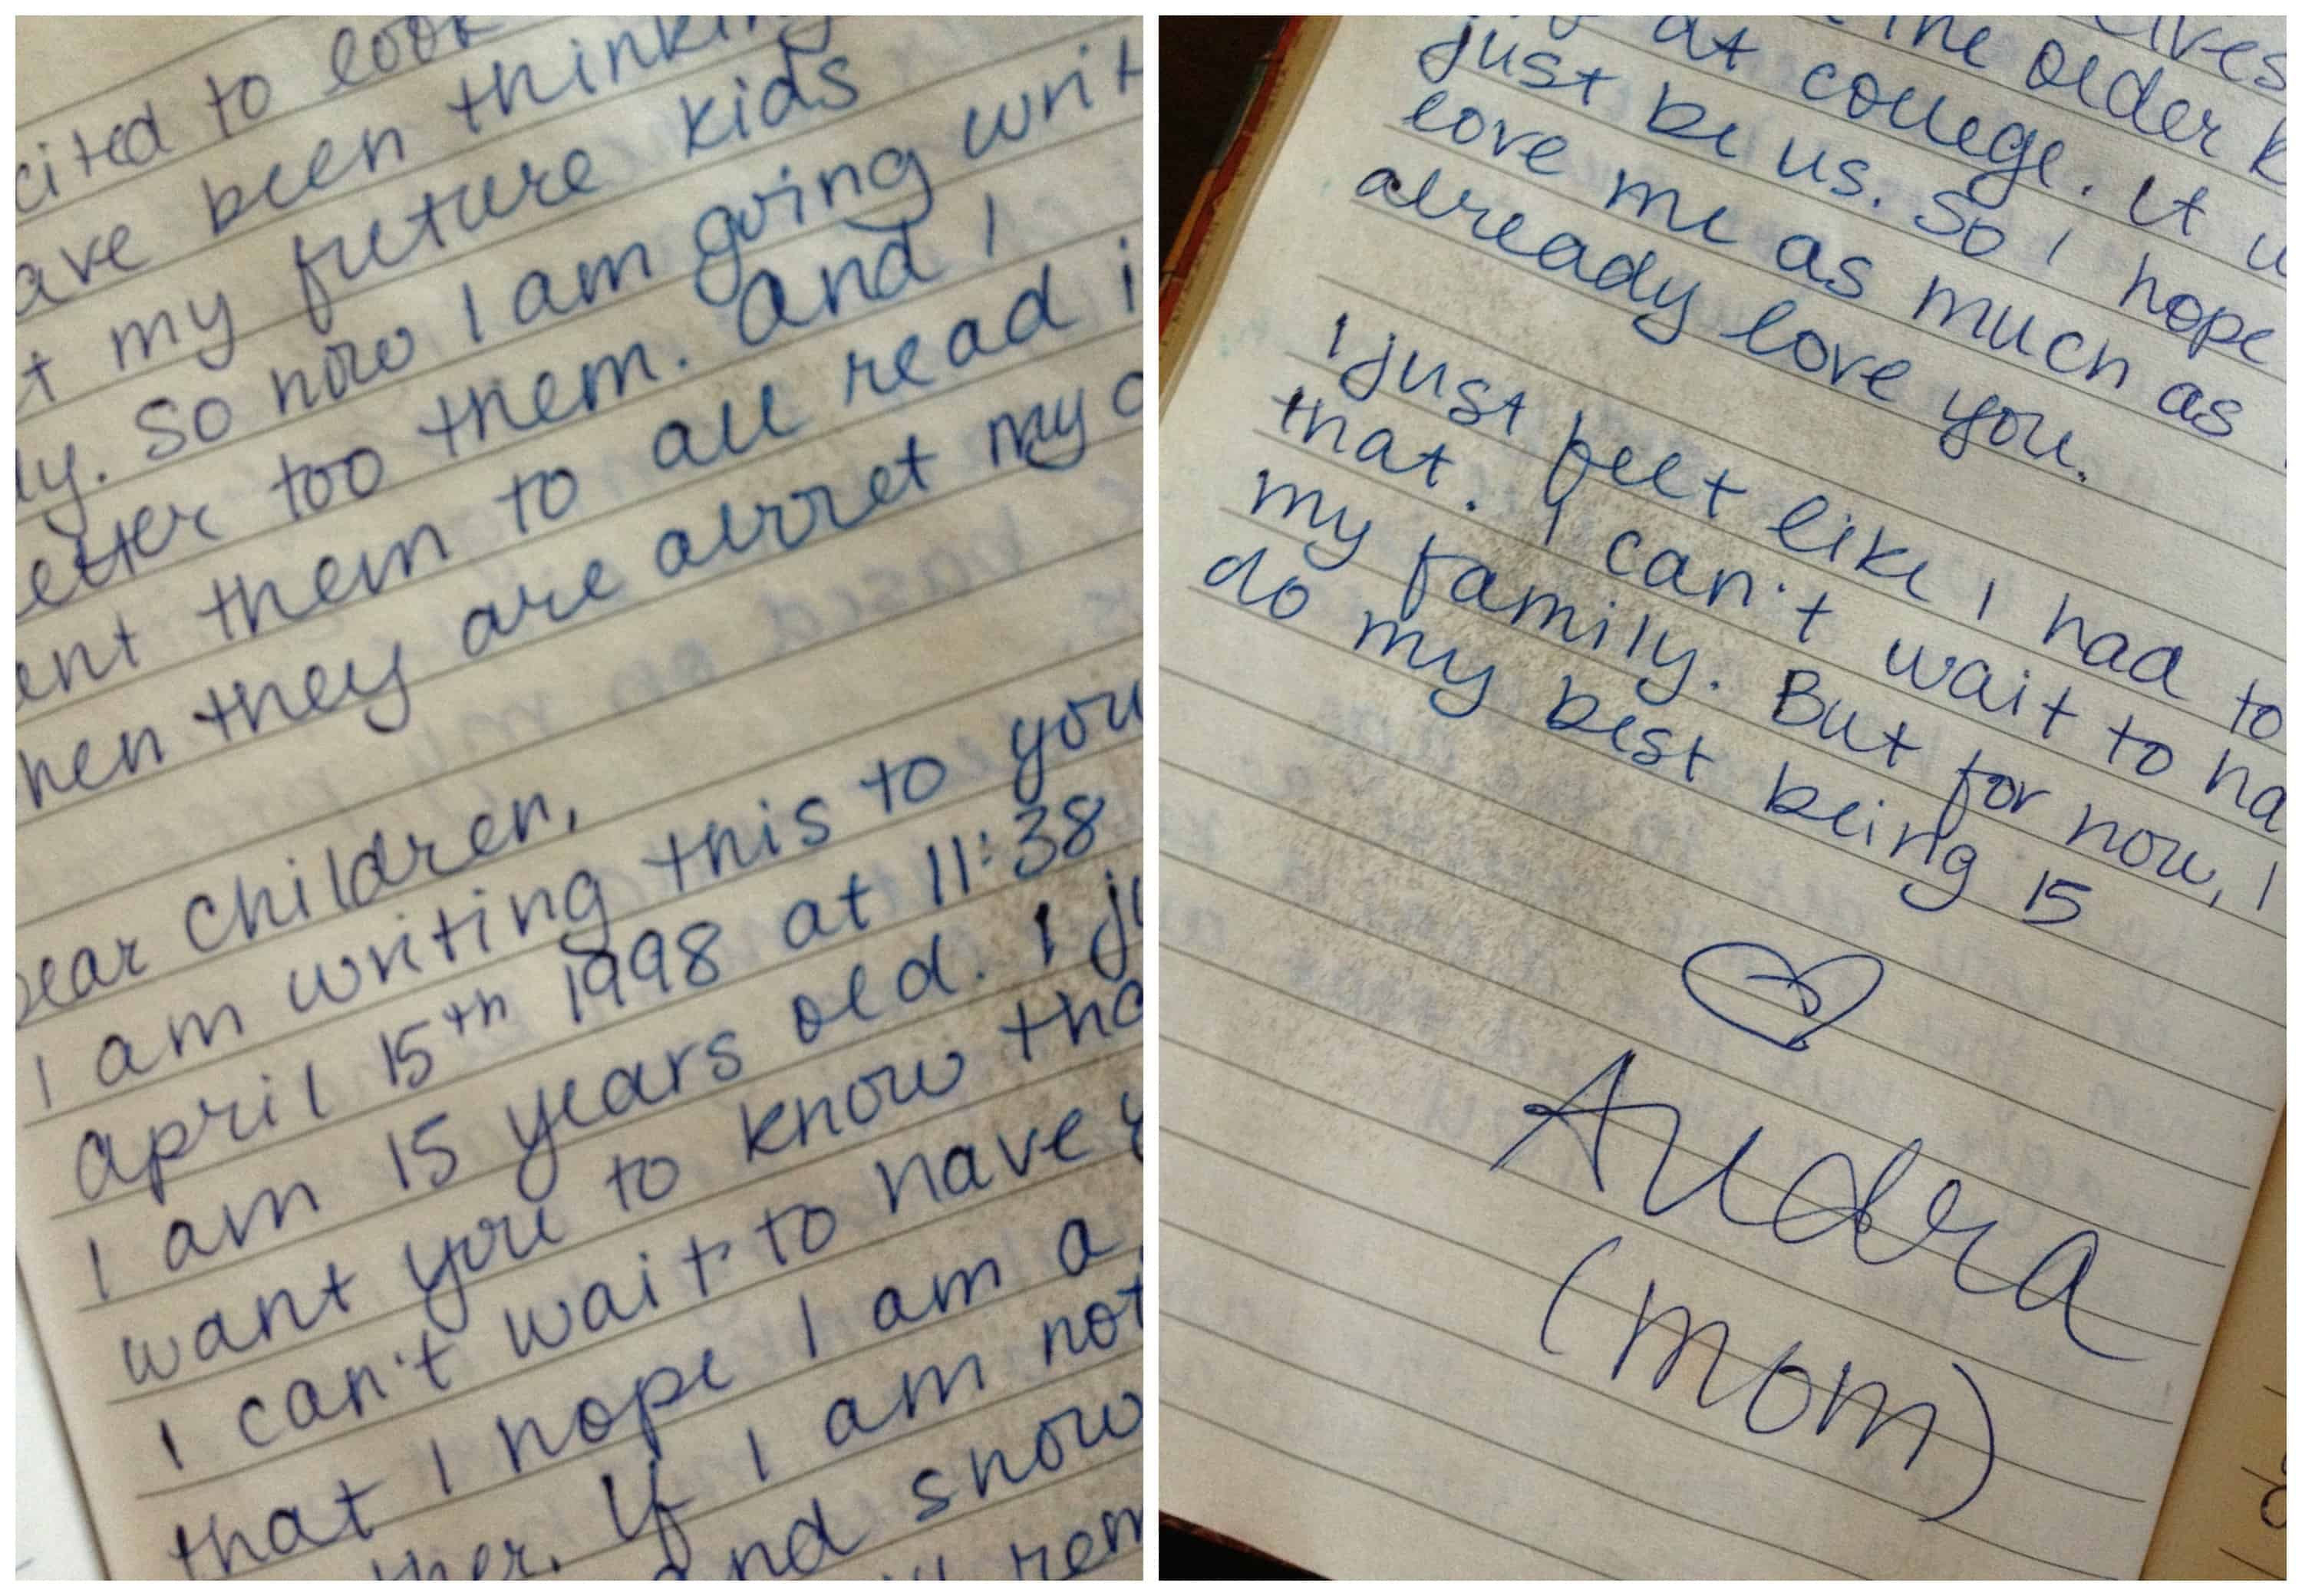 cited to look
ave been thinking
t my future kids
ly. So now I am going writ
etter too them. And I
ant them to all read i
hen they are abret my a
ear children,
I am writing this to you
april 15th 1998 at 11:38
I am 15 years old. I ju
want you to know tha
I can't wait to have y
that I hope I am a
ther. If I am not
and show
rem
the older k
at college. It w
just be us. So I hope
love me as much as
already love you.
I just felt like I had to
that. I can't wait to ha
my family. But for now, I
do my best being 15
Audra
(mom)